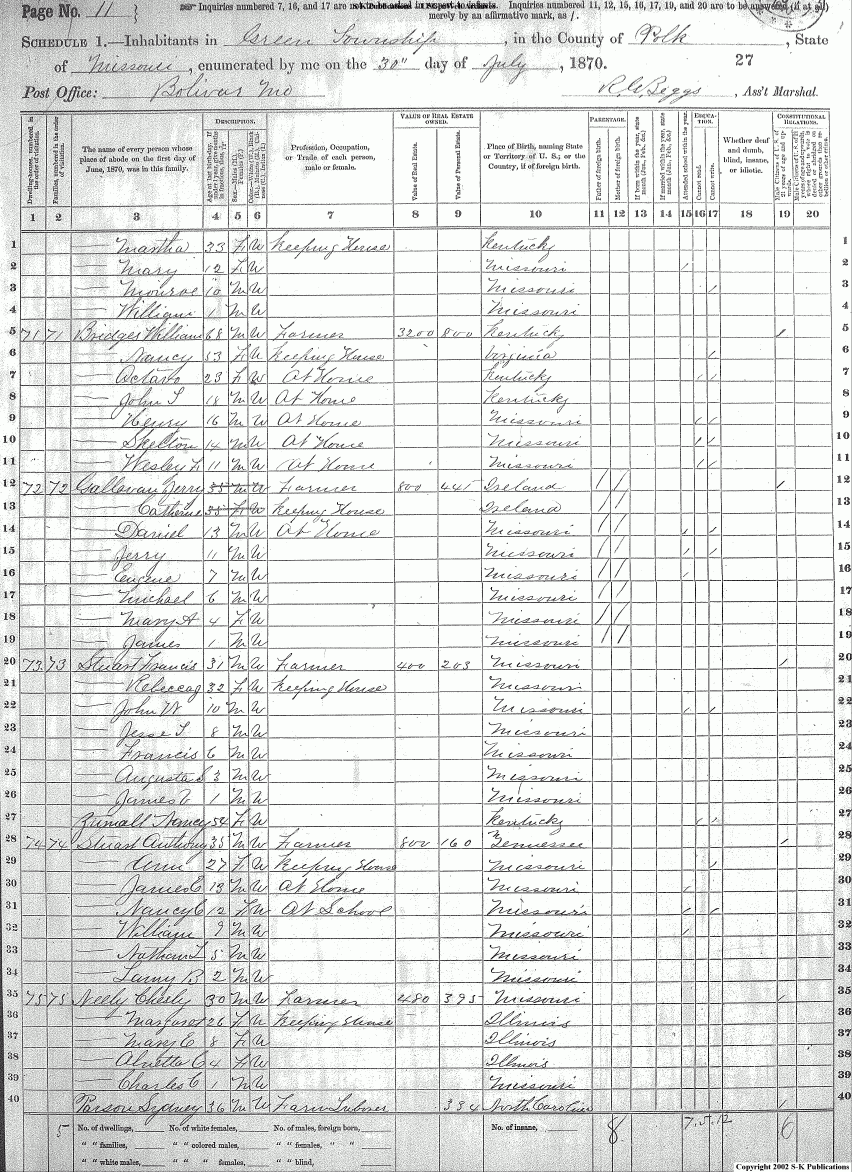 Page No. 11
Inquiries numbered 7, 16, and 17 are not to be asked in respect to infants. Inquiries numbered 11, 12, 15, 16, 17, 19, and 20 are to be answered (if at all)
merely by an affirmative mark, as /.
SCHEDULE 1.—Inhabitants in Green Township, in the County of Polk, State
of Missouri, enumerated by me on the 30" day of July, 1870. 27
Post Office: Bolivar Mo R. W. Beggs, Ass't Marshal.
DESCRIPTION. VALUE OF REAL ESTATE OWNED. PARENTAGE. EDUCATION. CONSTITUTIONAL RELATIONS.
Dwelling-houses, numbered in the order of visitation.
Families, numbered in the order of visitation.
The name of every person whose place of abode on the first day of June, 1870, was in this family.
Profession, Occupation, or Trade of each person, male or female.
Value of Real Estate.
Value of Personal Estate.
Place of Birth, naming State or Territory of U. S.; or the Country, if of foreign birth.
Father of foreign birth.
Mother of foreign birth.
If born within the year, state month (Jan., Feb., &c.)
If married within the year, state month (Jan., Feb., &c.)
Attended school within the year.
Cannot read.
Cannot write.
Whether deaf and dumb, blind, insane, or idiotic.
1 2 3 4 5 6 7 8 9 10 11 12 13 14 15 16 17 18 19 20
1 — Martha 33 F W Keeping House Kentucky 1
2 — Mary 12 F W Missouri / 2
3 — Monroe 10 M W Missouri / 3
4 — William 1 M W Missouri 4
5 71 71 Bridges William 68 M W Farmer 3200 800 Kentucky / 5
6 — Nancy 53 F W Keeping House Virginia / 6
7 — Octavo 23 F W At Home Kentucky / / 7
8 — John S 18 M W At Home Kentucky 8
9 — Henry 16 M W At Home Missouri / / 9
10 — Skelton 14 M W At Home Missouri / / 10
11 — Wesley 11 M W At Home Missouri / / 11
12 72 72 Gallavan Jerry 35 M W Farmer 800 445 Ireland / / / 12
13 — Catherine 35 F W Keeping House Ireland / / 13
14 — Daniel 13 M W At Home Missouri / / / / 14
15 — Jerry 11 M W Missouri / / / / 15
16 — Eugene 7 M W Missouri / / / 16
17 — Michael 6 M W Missouri / / 17
18 — Mary A 4 F W Missouri / / 18
19 — James 1 M W Missouri / / 19
20 73 73 Stuart Francis 31 M W Farmer 400 203 Missouri / 20
21 — Rebecca 32 F W Keeping House Missouri 21
22 — John W 10 M W Missouri / / 22
23 — Jesse S 8 M W Missouri 23
24 — Francis 6 M W Missouri 24
25 — Augusta S 3 M W Missouri 25
26 — James 1 M W Missouri 26
27 Zumalt Nancy 54 F W Kentucky / / 27
28 74 74 Stuart Anthony 35 M W Farmer 800 160 Tennessee / 28
29 — Ann 27 F W Keeping House Missouri / 29
30 — James C 13 M W At Home Missouri / 30
31 — Nancy C 12 F W At School Missouri / / 31
32 — William 9 M W Missouri / 32
33 — Nathan L 5 M W Missouri 33
34 — B 2 M W Missouri 34
35 75 75 Neely Chesly 30 M W Farmer 480 395 Missouri / 35
36 — Margaret 26 F W Keeping House Illinois 36
37 — Mary C 8 F W Illinois 37
38 — Alnetta C 4 F W Illinois 38
39 — Charles C 1 M W Missouri 39
40 Parson Sydney 36 M W Farm Laborer 334 North Carolina / 40
5 No. of dwellings, No. of white females, No. of males, foreign born, No. of insane, 8 7.5.12 6
" " families, " " colored males, " " females, " "
" " white males, " " " females, " " blind,
Copyright 2002 S-K Publications